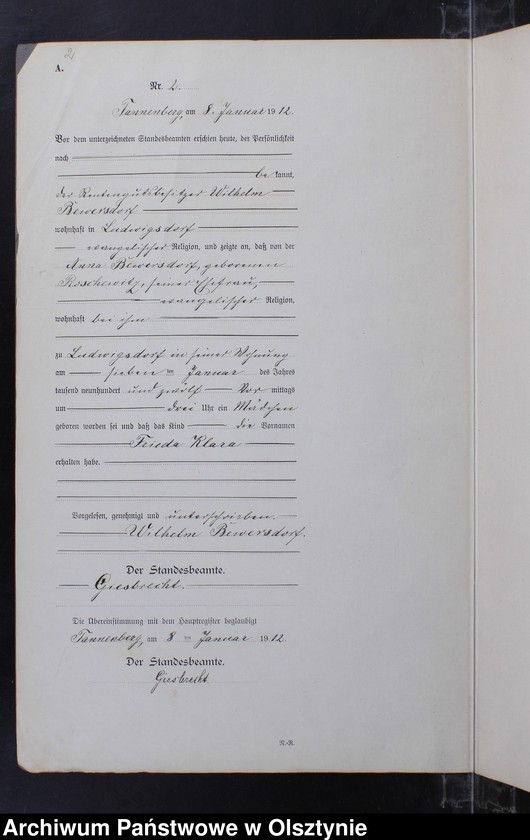 2
A.
Nr. 2.
Tannenberg, am 8. Januar 1912.
Vor dem unterzeichneten Standesbeamten erschien heute, der Persönlichkeit
nach
be kannt,
der Rentengutsbesitzer Wilhelm
Bewersdorf
wohnhaft in Ludwigsdorf
evangelischer Religion, und zeigte an, daß von der
Anna Bewersdorf, geborenen
Roschewitz, seiner Ehefrau,
evangelischer Religion,
wohnhaft bei ihm
zu Ludwigsdorf in seiner Wohnung
am sieben ten Januar des Jahres
tausend neunhundert und zwölf Vor mittags
um drei Uhr ein Mädchen
geboren worden sei und daß das Kind die Vornamen
Frieda Klara
erhalten habe.
Vorgelesen, genehmigt und unterschrieben.
Wilhelm Bewersdorf.
Der Standesbeamte.
Giesbrecht.
Die Übereinstimmung mit dem Hauptregister beglaubigt
Tannenberg, am 8 ten Januar 1912.
Der Standesbeamte.
Giesbrecht
R.-R.
Archiwum Państwowe w Olsztynie